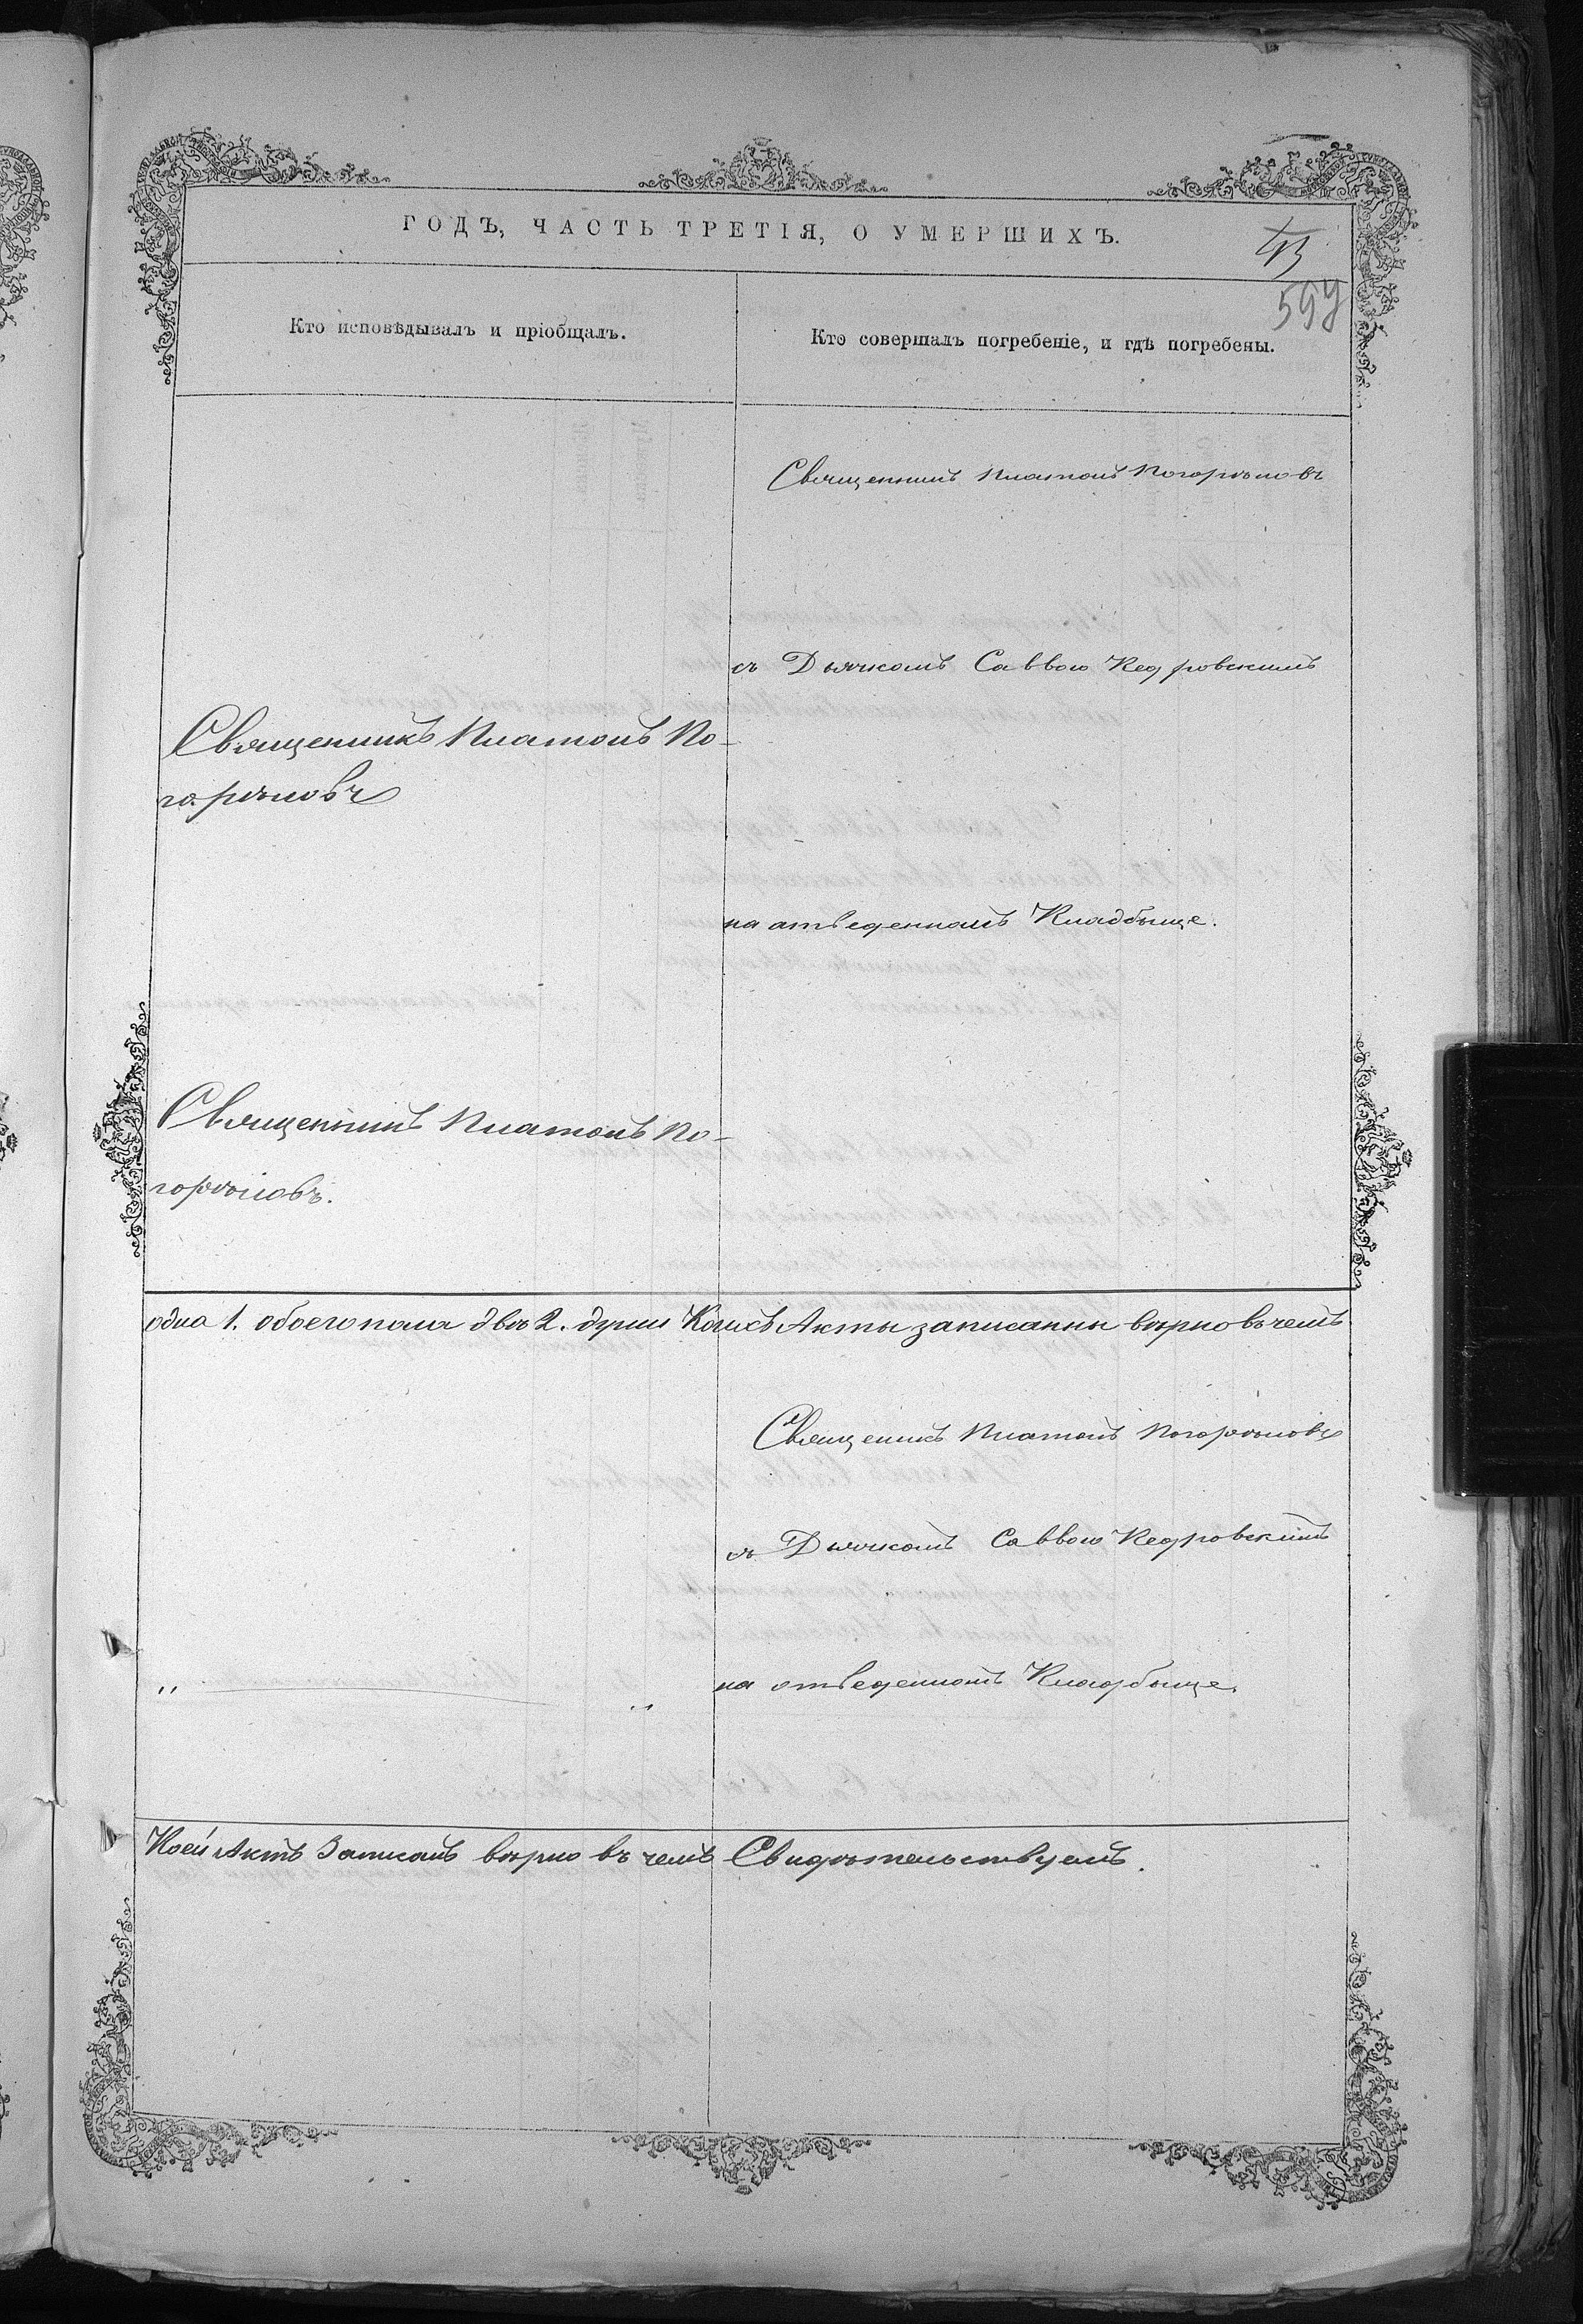 ГОДЪ, ЧАСТЬ ТРЕТІЯ, О УМЕРШИХЪ.
Кто исповѣдывалъ и пріобщалъ.
Кто совершалъ погребеніе, и гдѣ погребены.
Священникъ Платонъ Погорѣловъ
съ Дьячкомъ Саввою Кедровскимъ
Священникъ Платонъ По-
горѣловъ
на отведенномъ Кладбыще.
Священникъ Платонъ По-
горѣловъ.
одна 1. обоего пола двѣ 2. души Коихъ Акты записанны вѣрно въ чемъ
Священикъ Платонъ Погорѣловъ
съ Дьячкомъ Саввою Кедровскимъ
на отведенномъ Кладбыще.
Коей Актъ Записанъ вѣрно въ чемъ Свидѣтельствуемъ.